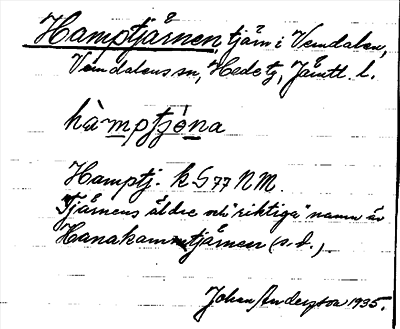 Hamptjärnen, tjärn i Vemdalen,
Vemdalens sn, Hede tg, Jämtl. l.
hàmptjὲna
Hamptj. k S 77 NM.
Tjärnens äldre och "riktiga" namn är
Hanakamstjärnen (s. d.)
Johan Anderson 1935.